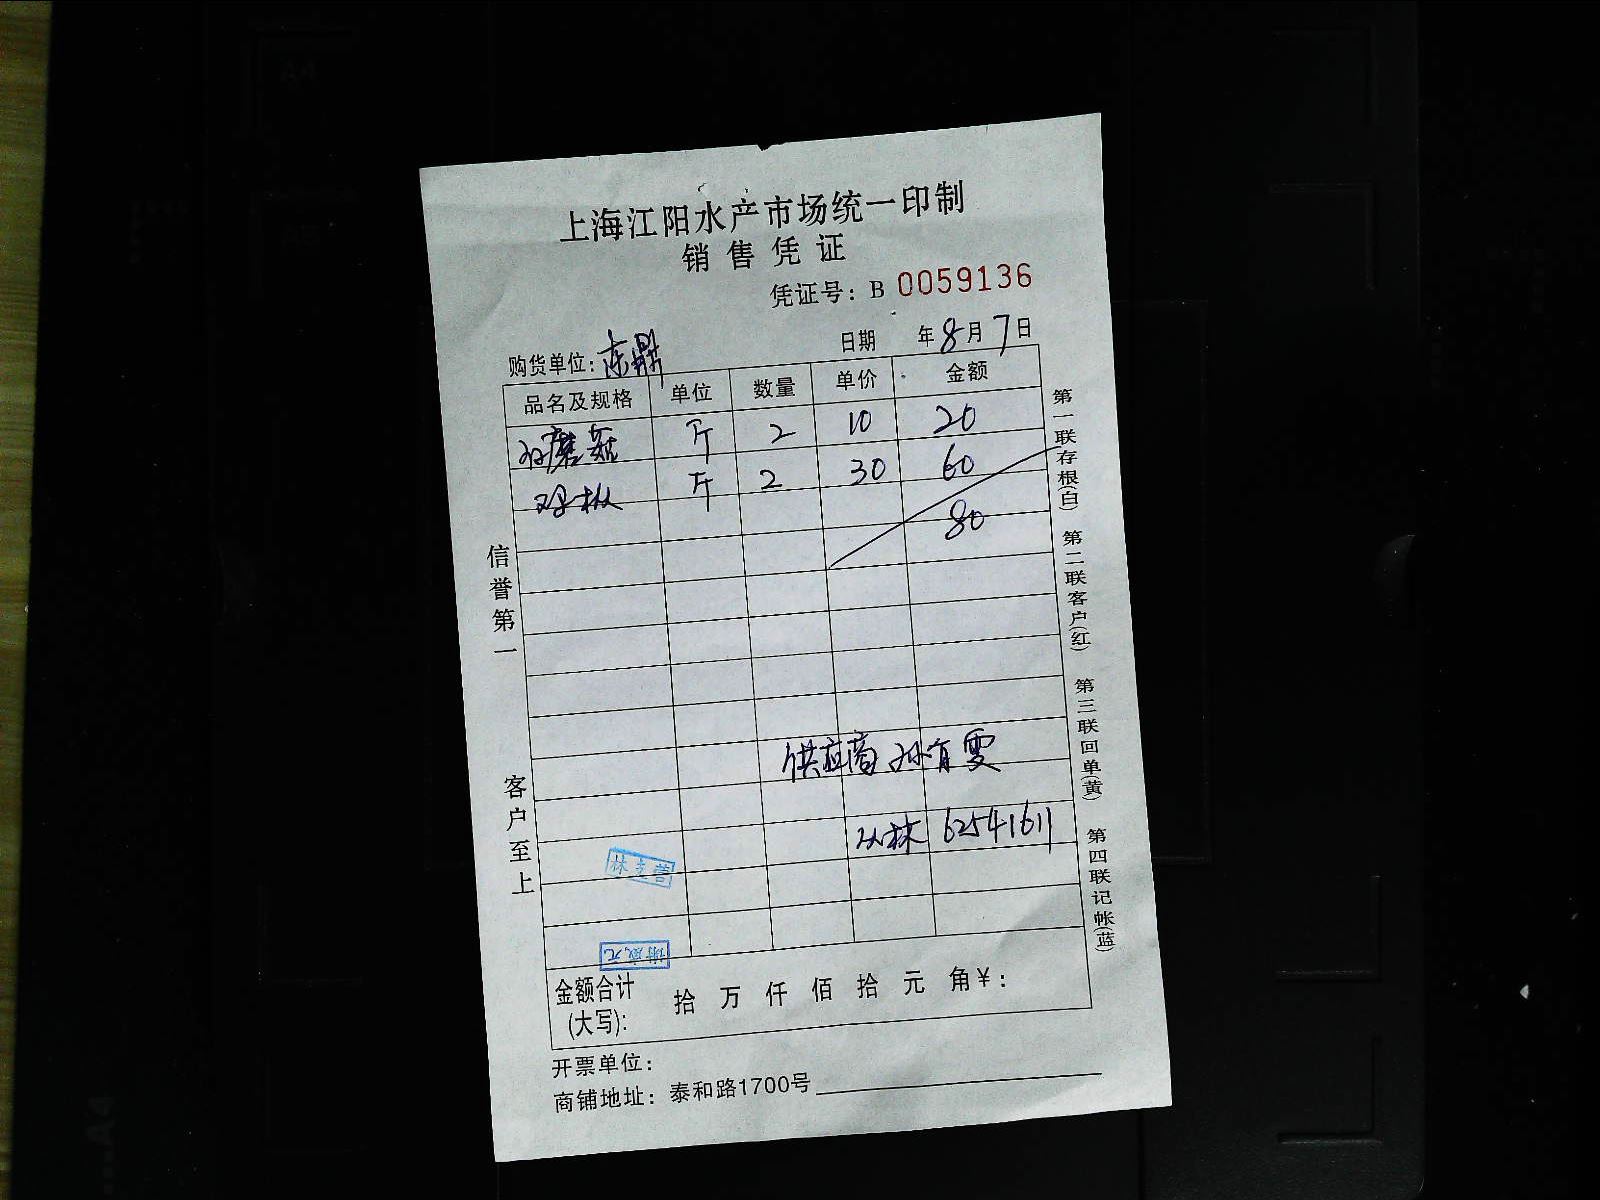 上海江阳水产市场统一印制
销售凭证
凭证号：B 0059136
购货单位：东鼎 日期 年8月7日
品名及规格 单位 数量 单价 金额
蘑菇 斤 2 10 20
斤 2 30 60
80
供应商 孙有雯
林 62541611
林支营
谢成元
金额合计(大写)： 拾 万 仟 佰 拾 元 角 ¥：
开票单位：
商铺地址：泰和路1700号
信誉第一
客户至上
第一联存根(白) 第二联客户(红) 第三联回单(黄) 第四联记帐(蓝)